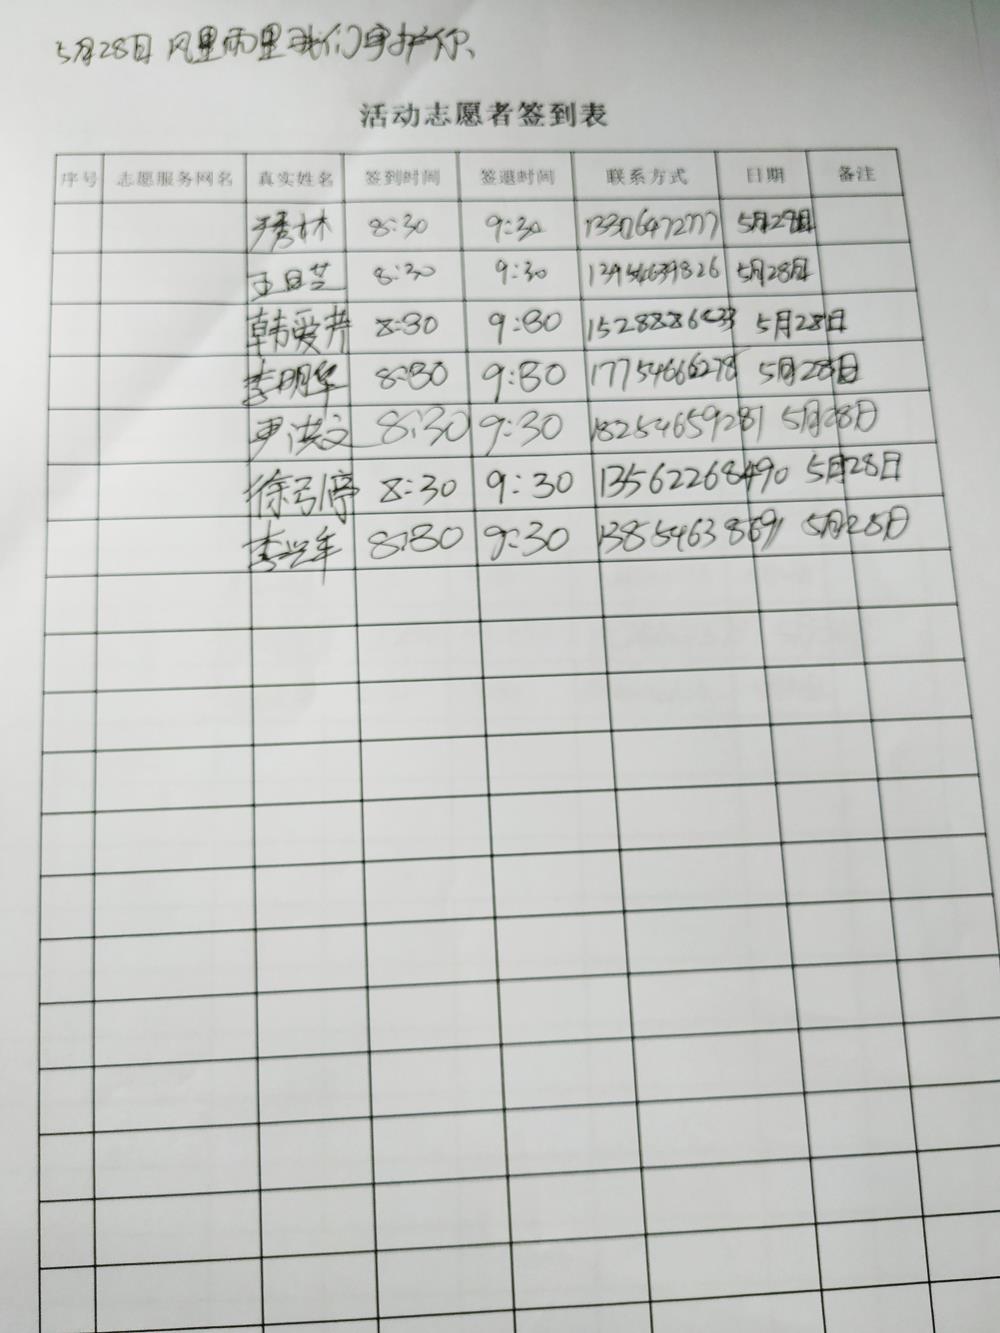 5月28日 风里雨里我们守护你、
活动志愿者签到表
序号 志愿服务网名 真实姓名 签到时间 签退时间 联系方式 日期 备注
8:30 9:30 13376472777 5月28日
8:30 9:30 5月28日
韩爱芹 8:30 9:30 15288886433 5月28日
李明华 8:30 9:30 17754666278 5月28日
尹洪文 8:30 9:30 18254659281 5月28日
徐弓停 8:30 9:30 13562268490 5月28日
李兴军 8:30 9:30 13854638691 5月28日